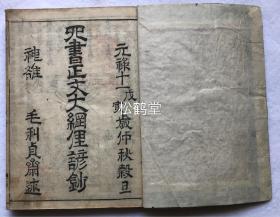 元禄十一戊寅歳仲秋穀旦
四書正文大綱俚諺鈔
神雒 毛利貞齋述
松鹤堂